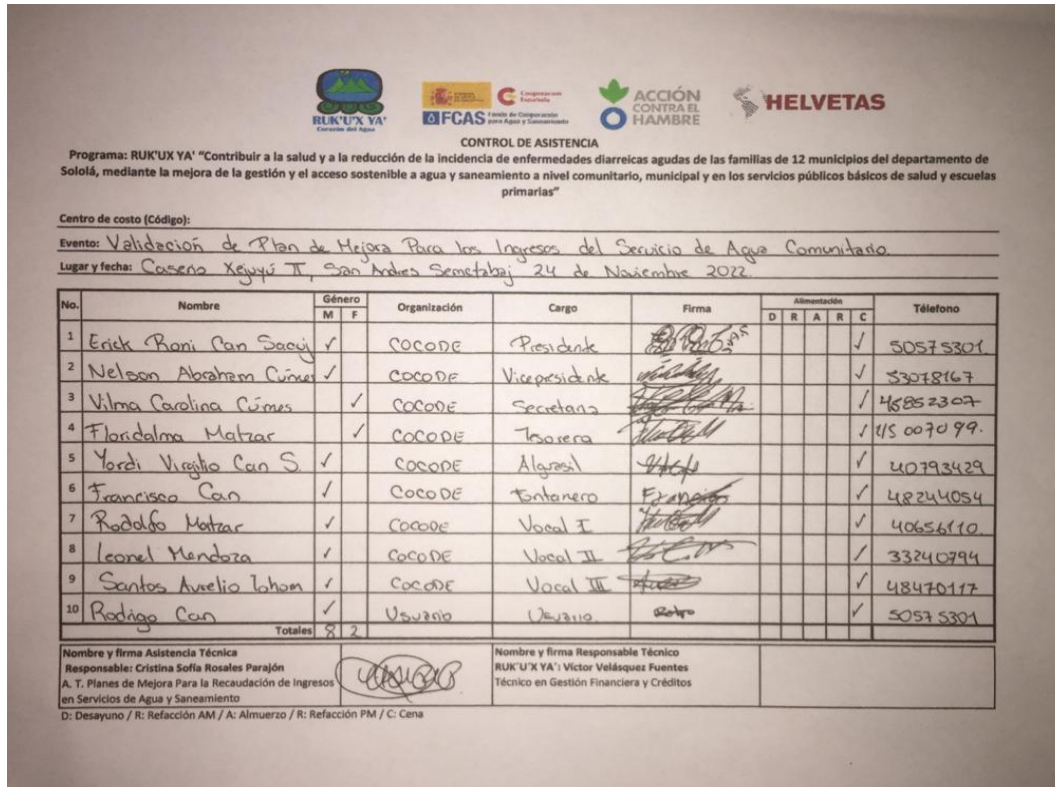 RUK'U'X YA'
Corazón del Agua
Cooperación Española
FCAS Fondo de Cooperación para Agua y Saneamiento
ACCIÓN CONTRA EL HAMBRE
HELVETAS
CONTROL DE ASISTENCIA
Programa: RUK'UX YA' "Contribuir a la salud y a la reducción de la incidencia de enfermedades diarreicas agudas de las familias de 12 municipios del departamento de
Sololá, mediante la mejora de la gestión y el acceso sostenible a agua y saneamiento a nivel comunitario, municipal y en los servicios públicos básicos de salud y escuelas
primarias"
Centro de costo (Código):
Evento: Validación de Plan de Mejora Para los Ingresos del Servicio de Agua Comunitario.
Lugar y fecha: Caserio Xejuyú II, San Andres Semetabaj 24 de Noviembre 2022.
No. Nombre Género Organización Cargo Firma Alimentación Télefono
M F D R A R C
1 Erick Roni Can Sacuj ✓ COCODE Presidente ✓ 50575301.
2 Nelson Abraham Cúmes ✓ COCODE Vicepresidente ✓ 53078167
3 Vilma Carolina Cúmes ✓ COCODE Secretaria ✓ 45852307
4 Floridalma Matzar ✓ COCODE Tesorera ✓ 45007099.
5 Yordi Virgilio Can S. ✓ COCODE Algrasil ✓ 40793429
6 Francisco Can ✓ COCODE Fontanero Francisco ✓ 48244054
7 Rodolfo Matzar ✓ COCODE Vocal I ✓ 40656110.
8 Leonel Mendoza ✓ COCODE Vocal II ✓ 33240794
9 Santos Aurelio Tohom ✓ COCODE Vocal III ✓ 48470117
10 Rodrigo Can ✓ Usuario Usuario. ✓ 50575301
Totales 8 2
Nombre y firma Asistencia Técnica
Responsable: Cristina Sofía Rosales Parajón
A. T. Planes de Mejora Para la Recaudación de Ingresos
en Servicios de Agua y Saneamiento
Nombre y firma Responsable Técnico
RUK'U'X YA': Víctor Velásquez Fuentes
Técnico en Gestión Financiera y Créditos
D: Desayuno / R: Refacción AM / A: Almuerzo / R: Refacción PM / C: Cena